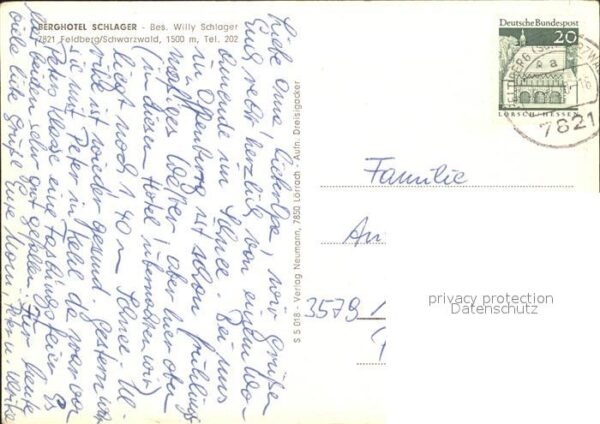 BERGHOTEL SCHLAGER - Bes. Willy Schlager
7821 Feldberg/Schwarzwald, 1500 m, Tel. 202
Liebe Oma, lieber Opa, wir Grüßen
Euch recht herzlich von einem Wo=
chenende im Schnee. Bei uns
in Offenburg ist schon frühlings
haftes Wetter, aber hier oben
(in diesem Hotel übernachten wir)
liegt noch 1,40 m Schnee. Ul
rike ist wieder gesund. Gestern war
sie mit Peter in Kehl, da war von
Peters Klasse eine Faschingsfeier. Es
hat beiden sehr gut gefallen. Für heute
viele liebe Grüße Eure Moni, Peter u. Ulrike
S 5 018 - Verlag Neumann, 7850 Lörrach - Aufn. Dreisigacker
Deutsche Bundespost
20
LORSCH/HESSEN
FELDBERG (SCHWARZWALD)
a
7821
Familie
An
3579
privacy protection
Datenschutz